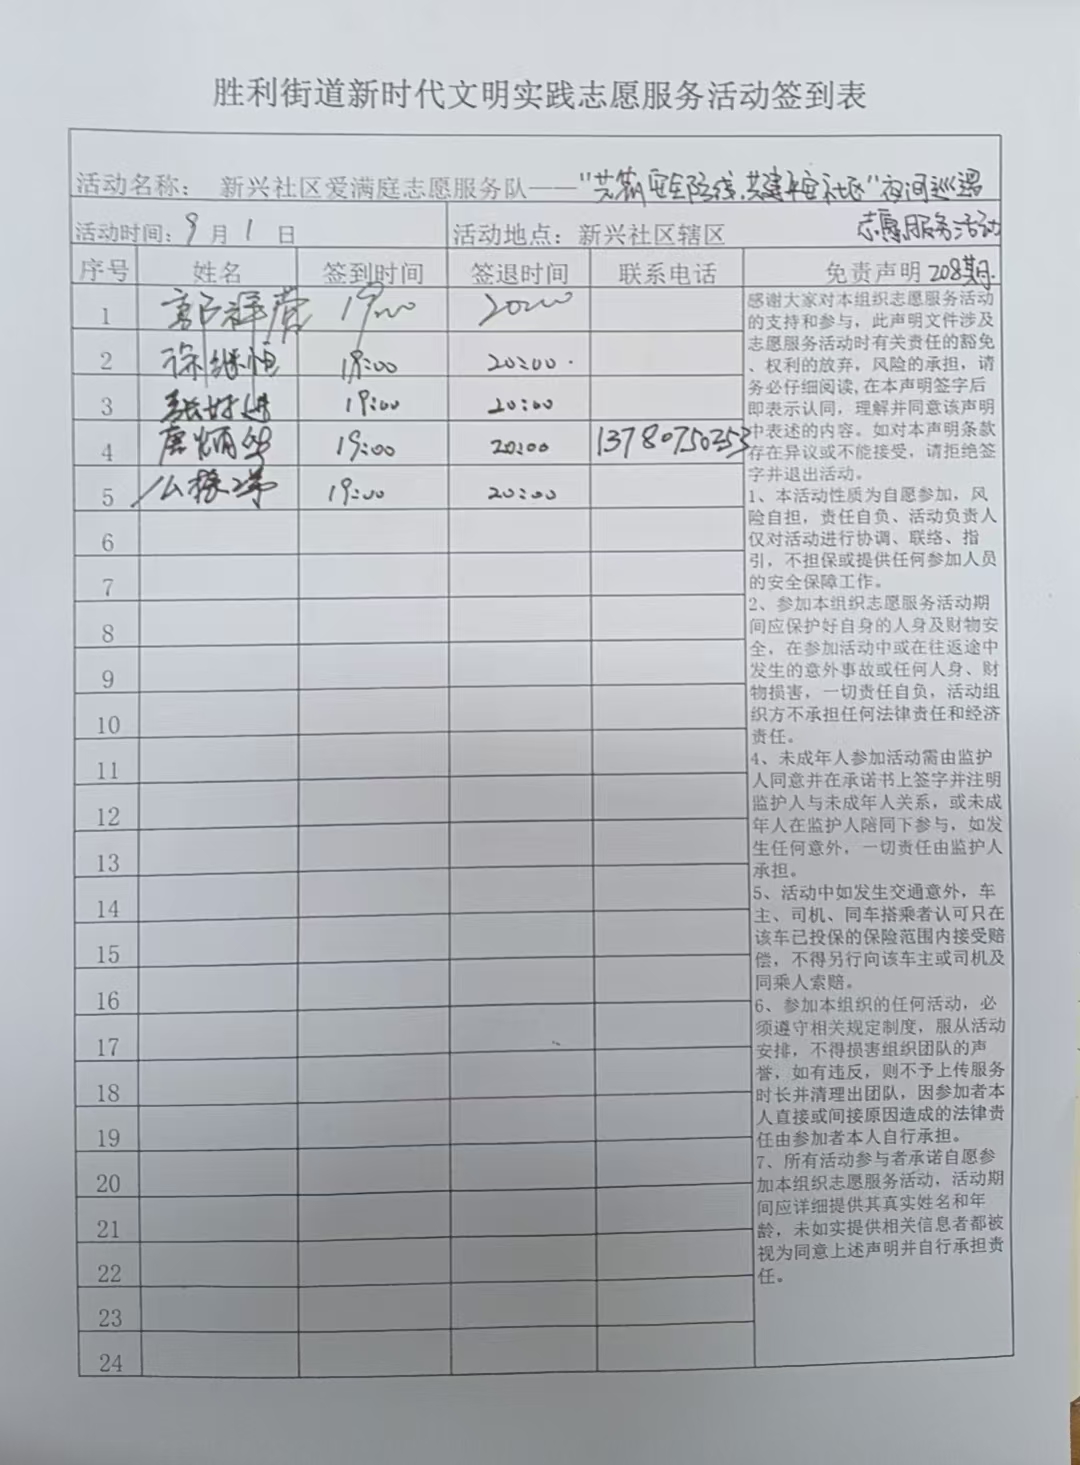 胜利街道新时代文明实践志愿服务活动签到表
活动名称： 新兴社区爱满庭志愿服务队——“共筑安全防线，共建平安社区”夜间巡逻
志愿服务活动
活动时间：9月1日 活动地点：新兴社区辖区
208期
序号 姓名 签到时间 签退时间 联系电话 免责声明
1 郭祥营 19:00 20:00
2 徐继恒 19:00 20:00
3 19:00 20:00
4 唐炳华 19:00 20:00 13780750253
5 19:00 20:00
6
7
8
9
10
11
12
13
14
15
16
17
18
19
20
21
22
23
24
感谢大家对本组织志愿服务活动
的支持和参与，此声明文件涉及
志愿服务活动时有关责任的豁免
、权利的放弃，风险的承担，请
务必仔细阅读,在本声明签字后
即表示认同，理解并同意该声明
中表述的内容。如对本声明条款
存在异议或不能接受，请拒绝签
字并退出活动。
1、本活动性质为自愿参加，风
险自担，责任自负、活动负责人
仅对活动进行协调、联络、指
引，不担保或提供任何参加人员
的安全保障工作。
2、参加本组织志愿服务活动期
间应保护好自身的人身及财物安
全，在参加活动中或在往返途中
发生的意外事故或任何人身、财
物损害，一切责任自负，活动组
织方不承担任何法律责任和经济
责任。
4、未成年人参加活动需由监护
人同意并在承诺书上签字并注明
监护人与未成年人关系，或未成
年人在监护人陪同下参与，如发
生任何意外，一切责任由监护人
承担。
5、活动中如发生交通意外，车
主、司机、同车搭乘者认可只在
该车已投保的保险范围内接受赔
偿，不得另行向该车主或司机及
同乘人索赔。
6、参加本组织的任何活动，必
须遵守相关规定制度，服从活动
安排，不得损害组织团队的声
誉，如有违反，则不予上传服务
时长并清理出团队，因参加者本
人直接或间接原因造成的法律责
任由参加者本人自行承担。
7、所有活动参与者承诺自愿参
加本组织志愿服务活动，活动期
间应详细提供其真实姓名和年
龄，未如实提供相关信息者都被
视为同意上述声明并自行承担责
任。